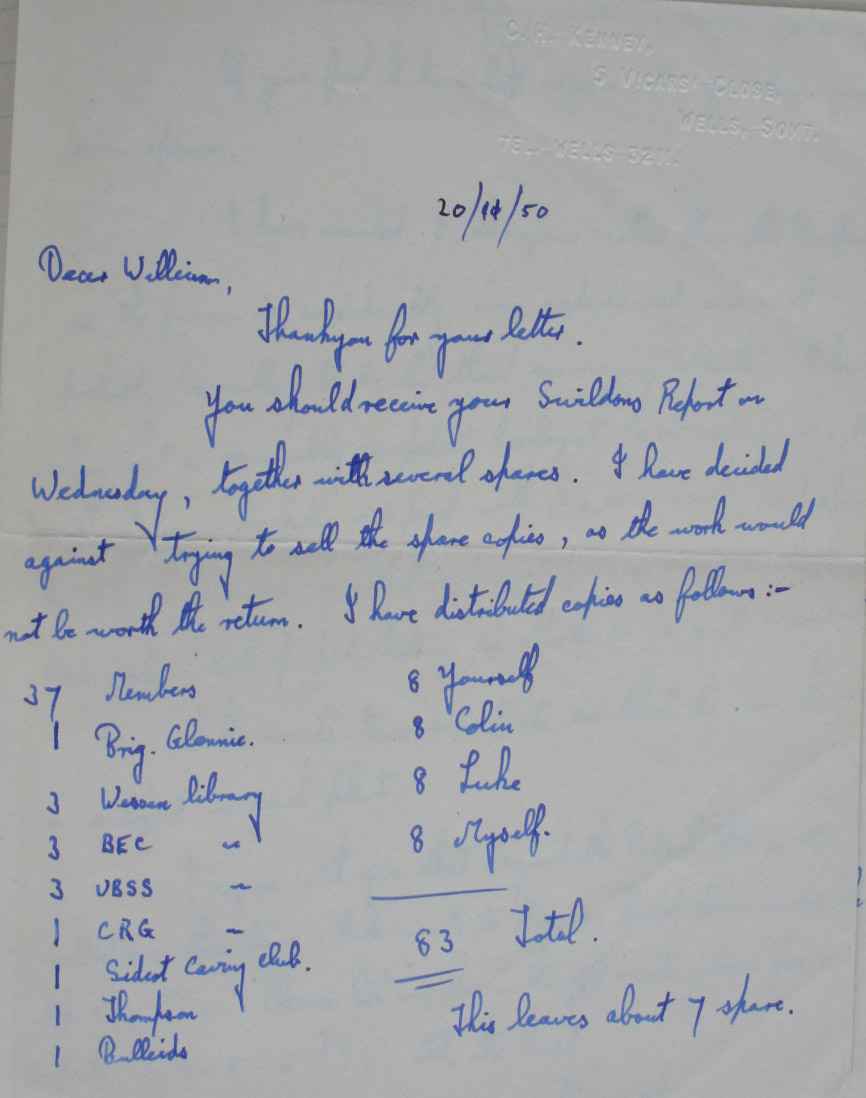 C. H. KENNEY.
5 VICARS' CLOSE,
WELLS, SOMT.
TEL. WELLS 3211.
20/11/50
Dear William,
Thankyou for your letter.
You should receive your Swildons Report on
Wednesday, together with several spares. I have decided
against trying to sell the spare copies, as the work would
not be worth the return. I have distributed copies as follows:-
37 Members
1 Brig. Glennie.
3 Wessex library
3 BEC "
3 UBSS "
1 CRG "
1 Sidcot Caving Club.
1 Thompson
1 Bulleids
8 Yourself
8 Colin
8 Luke
8 Myself.
83 Total.
This leaves about 7 spare.